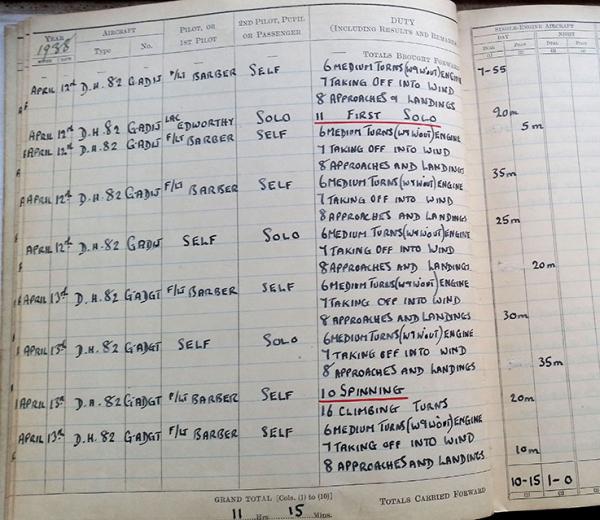 YEAR AIRCRAFT PILOT, OR 2ND PILOT, PUPIL DUTY SINGLE-ENGINE AIRCRAFT
1938 Type No. 1ST PILOT OR PASSENGER (INCLUDING RESULTS AND REMARKS DAY NIGHT
MONTH DATE DUAL PILOT DUAL PILOT
TOTALS BROUGHT FORWARD 7-55
APRIL 12th D.H.82 GADIJ F/LT BARBER SELF 6 MEDIUM TURNS (W & W'OUT) ENGINE
7 TAKING OFF INTO WIND
8 APPROACHES & LANDINGS 20m
APRIL 12th D.H.82 GADIJ LAC EDWORTHY SOLO 11 FIRST SOLO 5m
APRIL 12th D.H.82 GADIJ F/LT BARBER SELF 6 MEDIUM TURNS (W & W'OUT) ENGINE
7 TAKING OFF INTO WIND
8 APPROACHES AND LANDINGS 35m
APRIL 12th D.H.82 GADIJ F/LT BARBER SELF 6 MEDIUM TURNS (W & W'OUT) ENGINE
7 TAKING OFF INTO WIND
8 APPROACHES AND LANDINGS 25m
APRIL 12th D.H.82 GADIJ SELF SOLO 6 MEDIUM TURNS (W & W'OUT) ENGINE
7 TAKING OFF INTO WIND
8 APPROACHES AND LANDINGS 20m
APRIL 13th D.H.82 GADGT F/LT BARBER SELF 6 MEDIUM TURNS (W & W'OUT) ENGINE
7 TAKING OFF INTO WIND
8 APPROACHES AND LANDINGS 30m
APRIL 13th D.H.82 GADGT SELF SOLO 6 MEDIUM TURNS (W & W'OUT) ENGINE
7 TAKING OFF INTO WIND
8 APPROACHES AND LANDINGS 35m
APRIL 13th D.H.82 GADGT F/LT BARBER SELF 10 SPINNING
16 CLIMBING TURNS 20m
APRIL 13th D.H.82 GADGT F/LT BARBER SELF 6 MEDIUM TURNS (W & W'OUT) ENGINE
7 TAKING OFF INTO WIND
8 APPROACHES AND LANDINGS 10m
GRAND TOTAL [Cols. (1) to (10)] TOTALS CARRIED FORWARD 10-15 1-0
11 Hrs. 15 Mins. (1) (2) (3) (4)